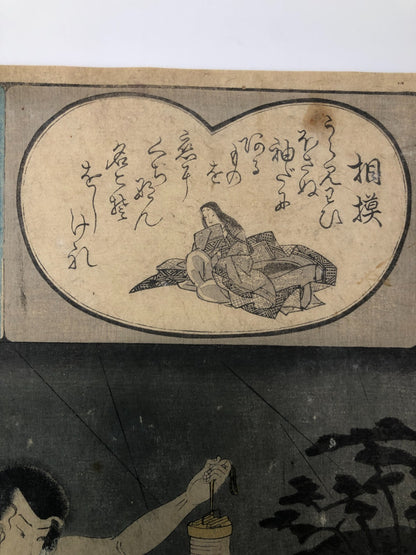 相摸
うらみわひ
ほさぬ
袖だに
ある
もの
を
恋に
くちなん
名こそ
をしけれ